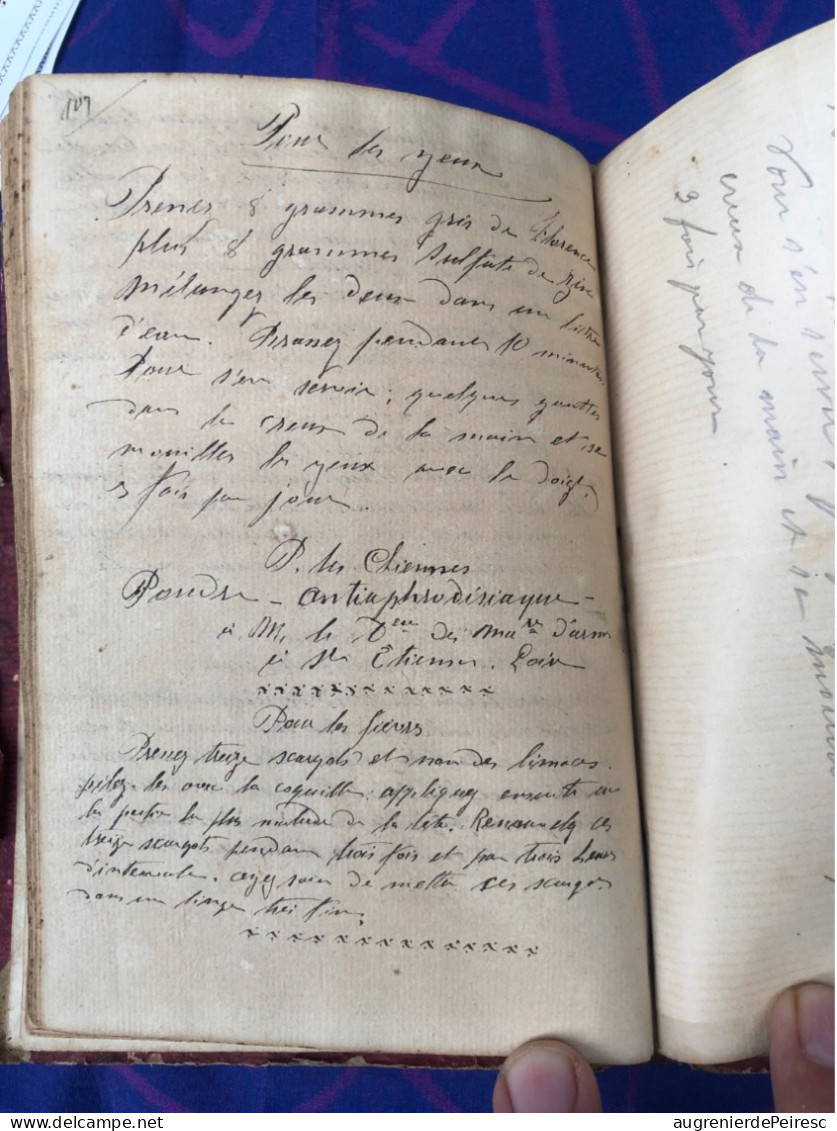 107
Pour les yeux
Prenez 8 grammes gris de Florence
plus 8 grammes sulfate de zinc
mélangez les deux dans un litre
d'eau. Brassez pendant 10 minutes.
Pour s'en servir; quelques gouttes
dans le creux de la main et se
mouiller les yeux avec le doigt.
3 fois par jour.
P. les Chiennes
Poudre - antiaphrodisiaque -
à M. le des d'armes
à St Étienne. Loire
x x x x x x x x x x x x x
Pour les fièvres
Prenez treize scargots et non des limaces.
pilez-les avec la coquille: appliquez ensuite sur
la partie la plus malade de la tête. Renouvelez ces
treize scargots pendant trois fois et par trois heures
d'intervalle. ayez soin de mettre ces scargots
dans un linge très fin.
x x x x x x x x x x x x x x
Pour s'en servir
creux de la main et se
3 fois par jour
augrenierdePeiresc